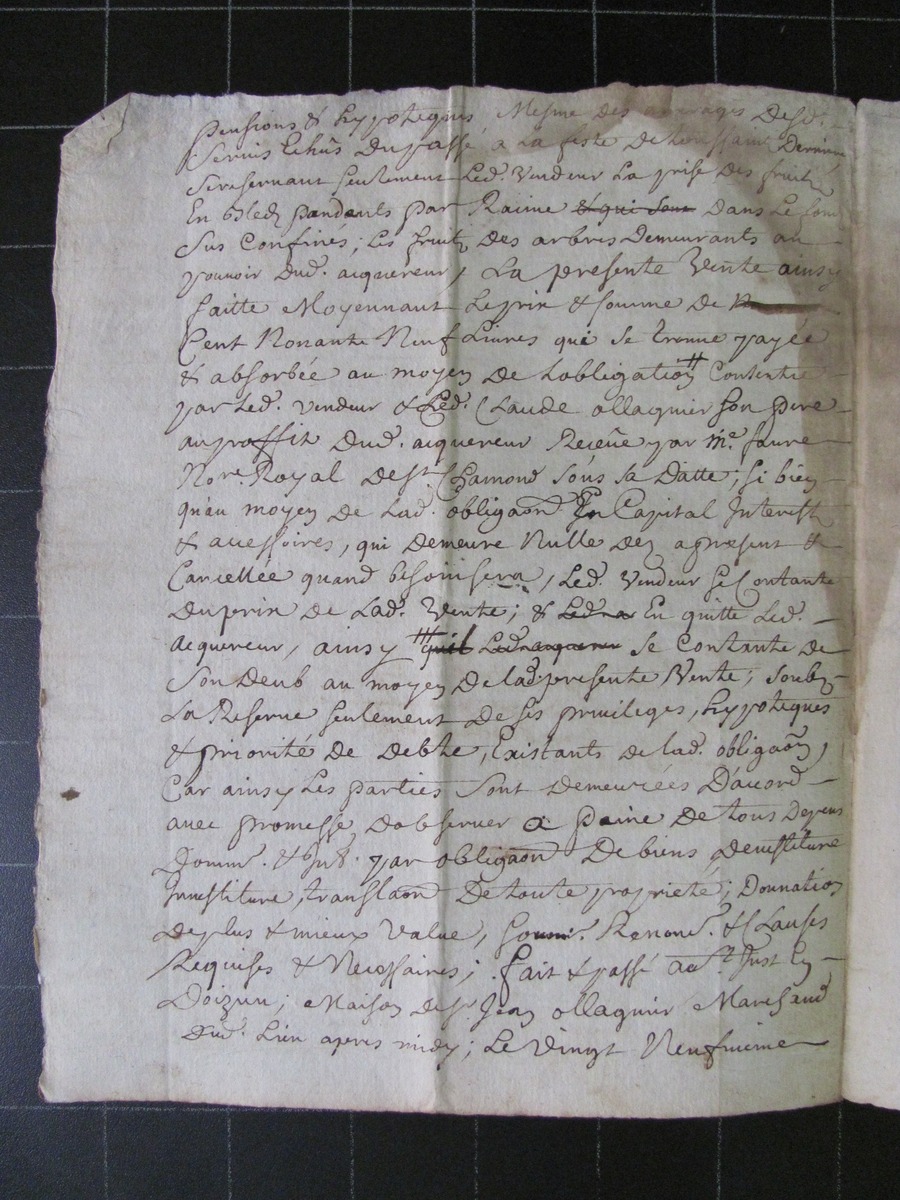 pensions & hypoteques Mesme des arrerages Desd.
Servis Echus Dupassé a La feste De toussaint Derniere
Sereservant seulement Led. Vendeur La prise des fruits
En bleds pandants par Raiine & qui sont Dans Le fond
Sus Confinés; Les fruits Des arbres Demeurants au
pouvoir Dud. aiquereur, La presente Vente ainsy
faitte Moyennant Leprix & somme De
Cent Nonante Neuf Livres qui se treuve payée
& absorbée au moyen De Lobligation Consentie
par Led. vendeur & Led. Claude ollagnier son pere
auproffit Dud. aiquereur Receüe par Me. faure
Nore. Royal De St. Chamond sous sa Datte; si bien
qu'au moyen De Lad. obligaon En Capital Interest
& accessoires, qui Demeure Nulle Dez apresent &
Cancellée quand besoin sera, Led. vendeur se Contante
Duprix De Lad. Vente; & Led. En quitte Led.
acquereur, ainsy qu'il Led. acquereur se Contante De
Son Deub au moyen De lad. presente Vente; soubz
La Reserve seulement De ses privileges, hypoteques
& priorité De Debte, Existants De lad. obligaon,
Car ainsy Les parties sont Demeurées D'acord
avec promesse Dobserver a paine De tous Depens
Domm. & Int. par obligaon De biens Devestiture
Investiture, translaon De toute proprieté; Donnation
De plus & mieux value, soum. Renon. & Clauses
Requises & Necessaires; fait & passé a St. Just En
Doizieu; Maison De sr. Jean ollagnier Marchand
Dud. Lieu apres midy; Le Vingt Neufvieme